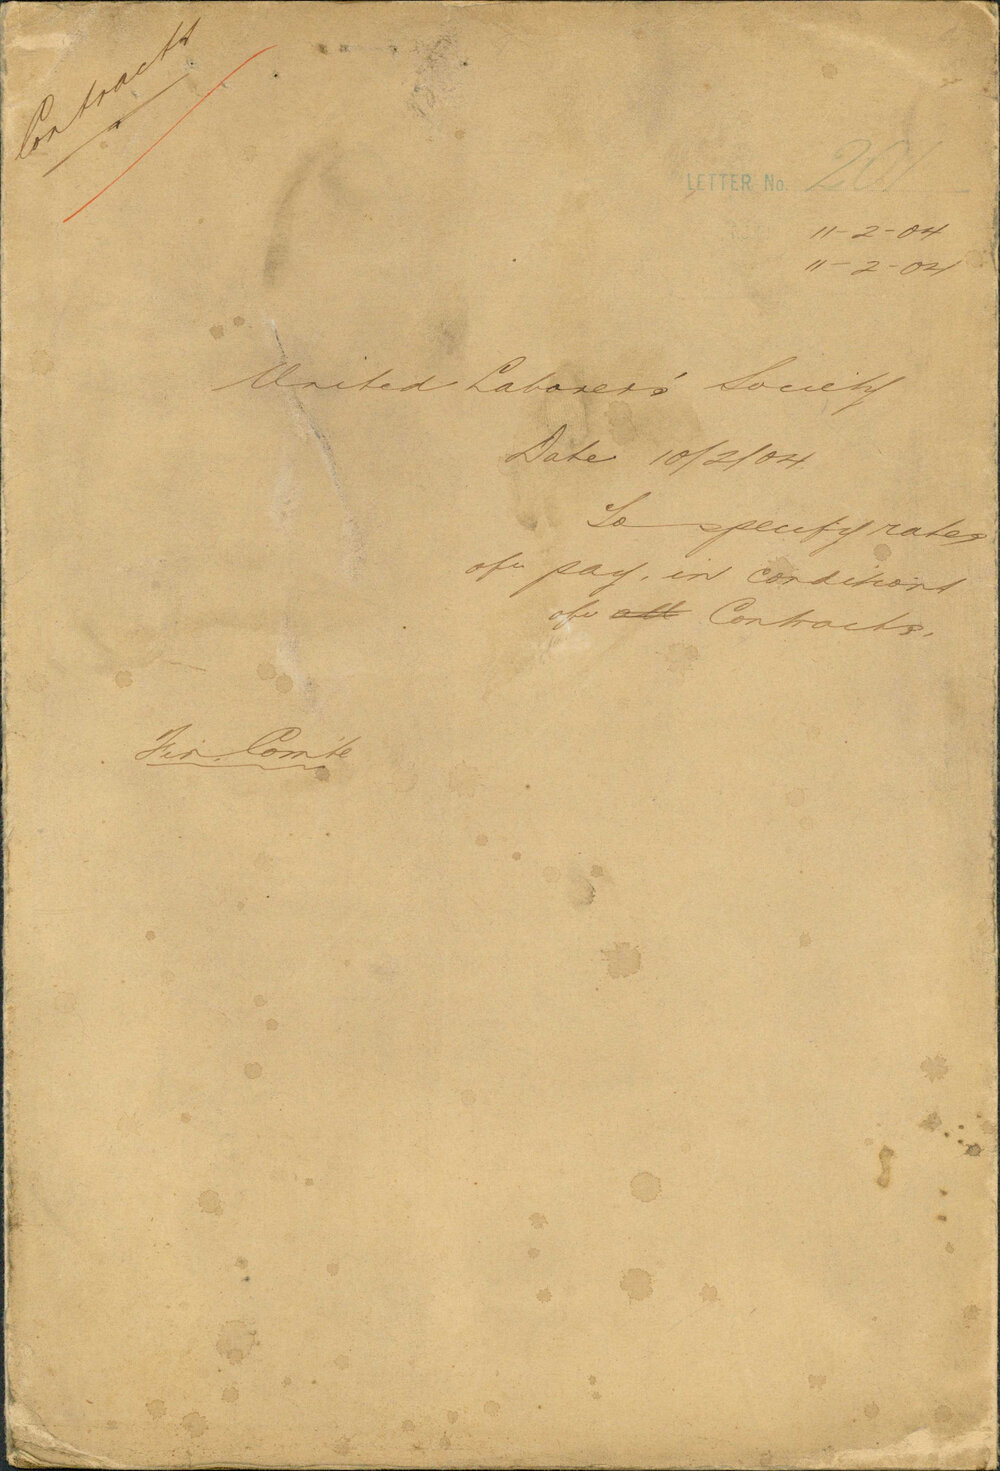 Contracts
LETTER No. 201
11-2-04
11-2-04
United Laborers' Society
Date 10/2/04
To specify rates
of pay, in conditions
of all Contracts.
Fin. Com'te